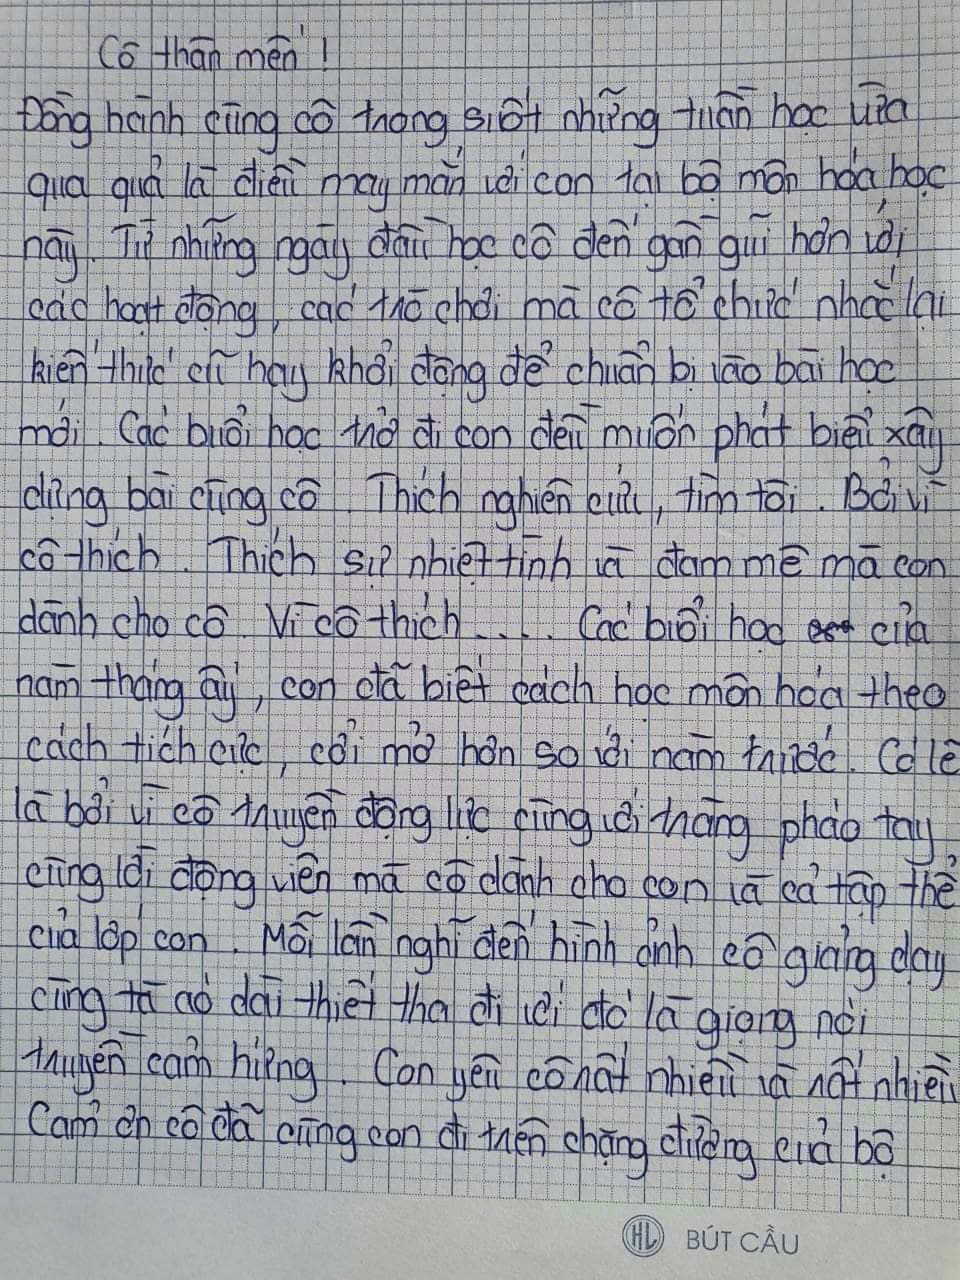 Cô thân mến !
Đồng hành cùng cô trong suốt những tuần học vừa
qua quả là điều may mắn với con tại bộ môn hóa học
này. Từ những ngày đầu học cô đến gần gũi hơn với
các hoạt động, các trò chơi mà cô tổ chức nhắc lại
kiến thức cũ hay khởi động để chuẩn bị vào bài học
mới. Các buổi học trở đi con đều muốn phát biểu xây
dựng bài cùng cô. Thích nghiên cứu, tìm tòi. Bởi vì
cô thích. Thích sự nhiệt tình và đam mê mà con
dành cho cô. Vì cô thích.... Các buổi học của
năm tháng ấy, con đã biết cách học môn hóa theo
cách tích cực, cởi mở hơn so với năm trước. Có lẽ
là bởi vì cô truyền động lực cùng với tràng pháo tay
cùng lời động viên mà cô dành cho con và cả tập thể
của lớp con. Mỗi lần nghĩ đến hình ảnh cô giảng dạy
cùng tà áo dài thiết tha đi với đó là giọng nói
truyền cảm hứng. Con yêu cô rất nhiều và rất nhiều
Cảm ơn cô đã cùng con đi trên chặng đường của bộ
HL BÚT CẦU